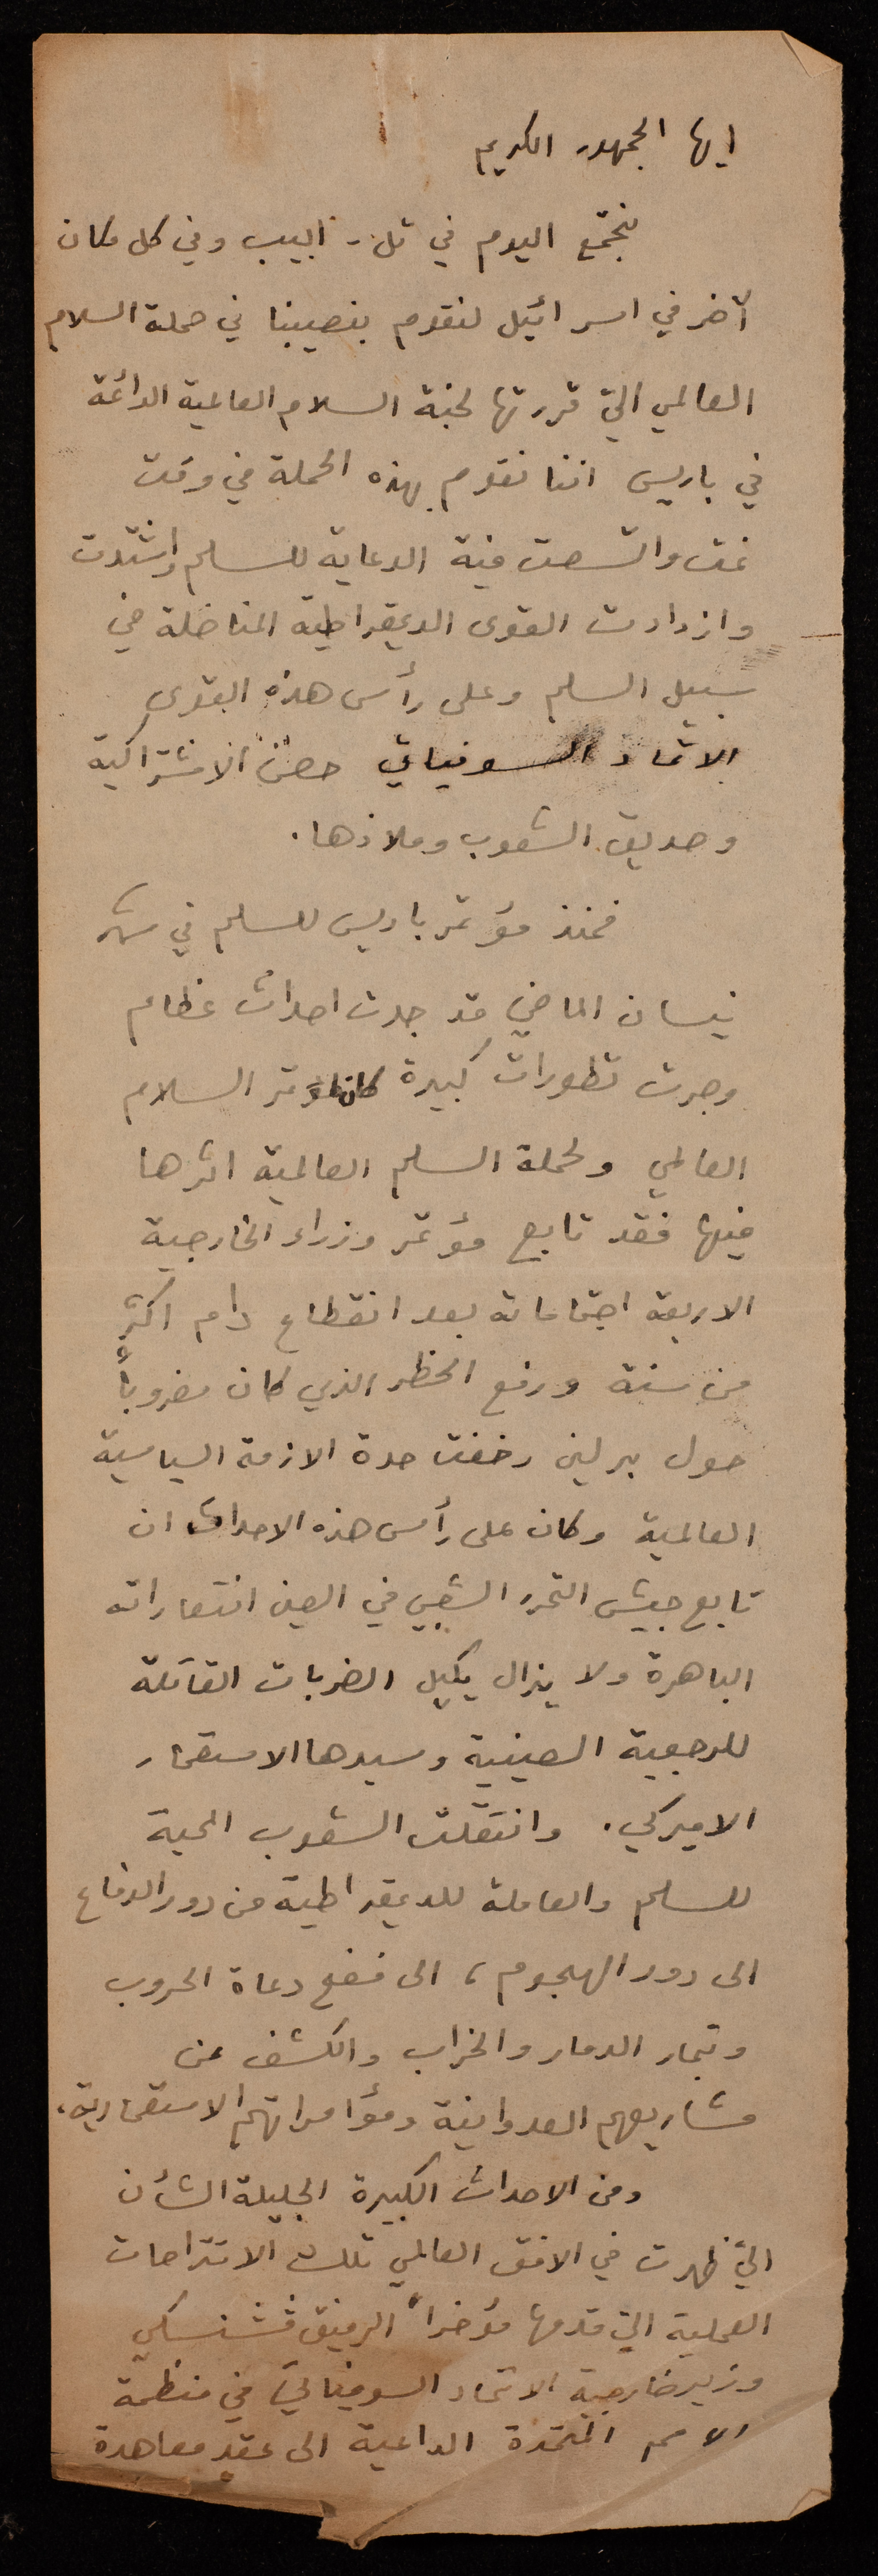 ايها الجمهور الكريم
نجتمع اليوم في تل - ابيب وفي كل مكان
آخر في اسرائيل لنقوم بنصيبنا في حملة السلام
العالمي التي قررتها لجنة السلام العالمية الدائمة
في باريس اننا نقوم بهذه الحملة في وقت
نمت واتسعت فيه الدعاية للسلم واشتدت
وازدادت القوى الديمقراطية المناضلة في
سبيل السلم وعلى رأس هذه القوى
الاتحاد السوفياتي حصن الاشتراكية
وصديق الشعوب وملاذها.
فمنذ مؤتمر باريس للسلم في شهر
نيسان الماضي قد جدت احداث عظام
وجرت تطورات كبيرة كان لمؤتمر السلام
العالمي ولحملة السلم العالمية اثرها
فيها فقد تابع مؤتمر وزراء الخارجية
الاربعة اجتماعاته بعد انقطاع دام اكثر
من سنة ورفع الحظر الذي كان مضروباً
حول برلين وخفت حدة الازمة السياسية
العالمية وكان على رأس هذه الاحداث ان
تابع جيش التحرر الشعبي في الصين انتصاراته
الباهرة ولا يزال يكيل الضربات القاتلة
للرجعية الصينية وسيدها الاستعمار
الاميركي. وانتقلت الشعوب المحبة
للسلم والعاملة للديمقراطية من دور الدفاع
الى دور الهجوم، الى فضح دعاة الحروب
وتجار الدمار والخراب والكشف عن
مشاريعهم العدوانية ومؤامراتهم الاستعمارية.
ومن الاحداث الكبيرة الجليلة الشأن
التي ظهرت في الافق العالمي تلك الاقتراحات
العملية التي قدمها مؤخراً الرفيق فشنسكي
وزير خارجية الاتحاد السوفياتي في منظمة
الامم المتحدة الداعية الى عقد معاهدة